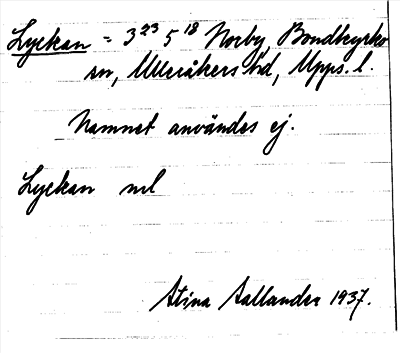 Lyckan = 3²³ 5¹⁸ Norby, Bondkyrko
sn, Ulleråkers hd, Upps. l.
Namnet användes ej.
Lyckan ml
Stina Sallander 1937.